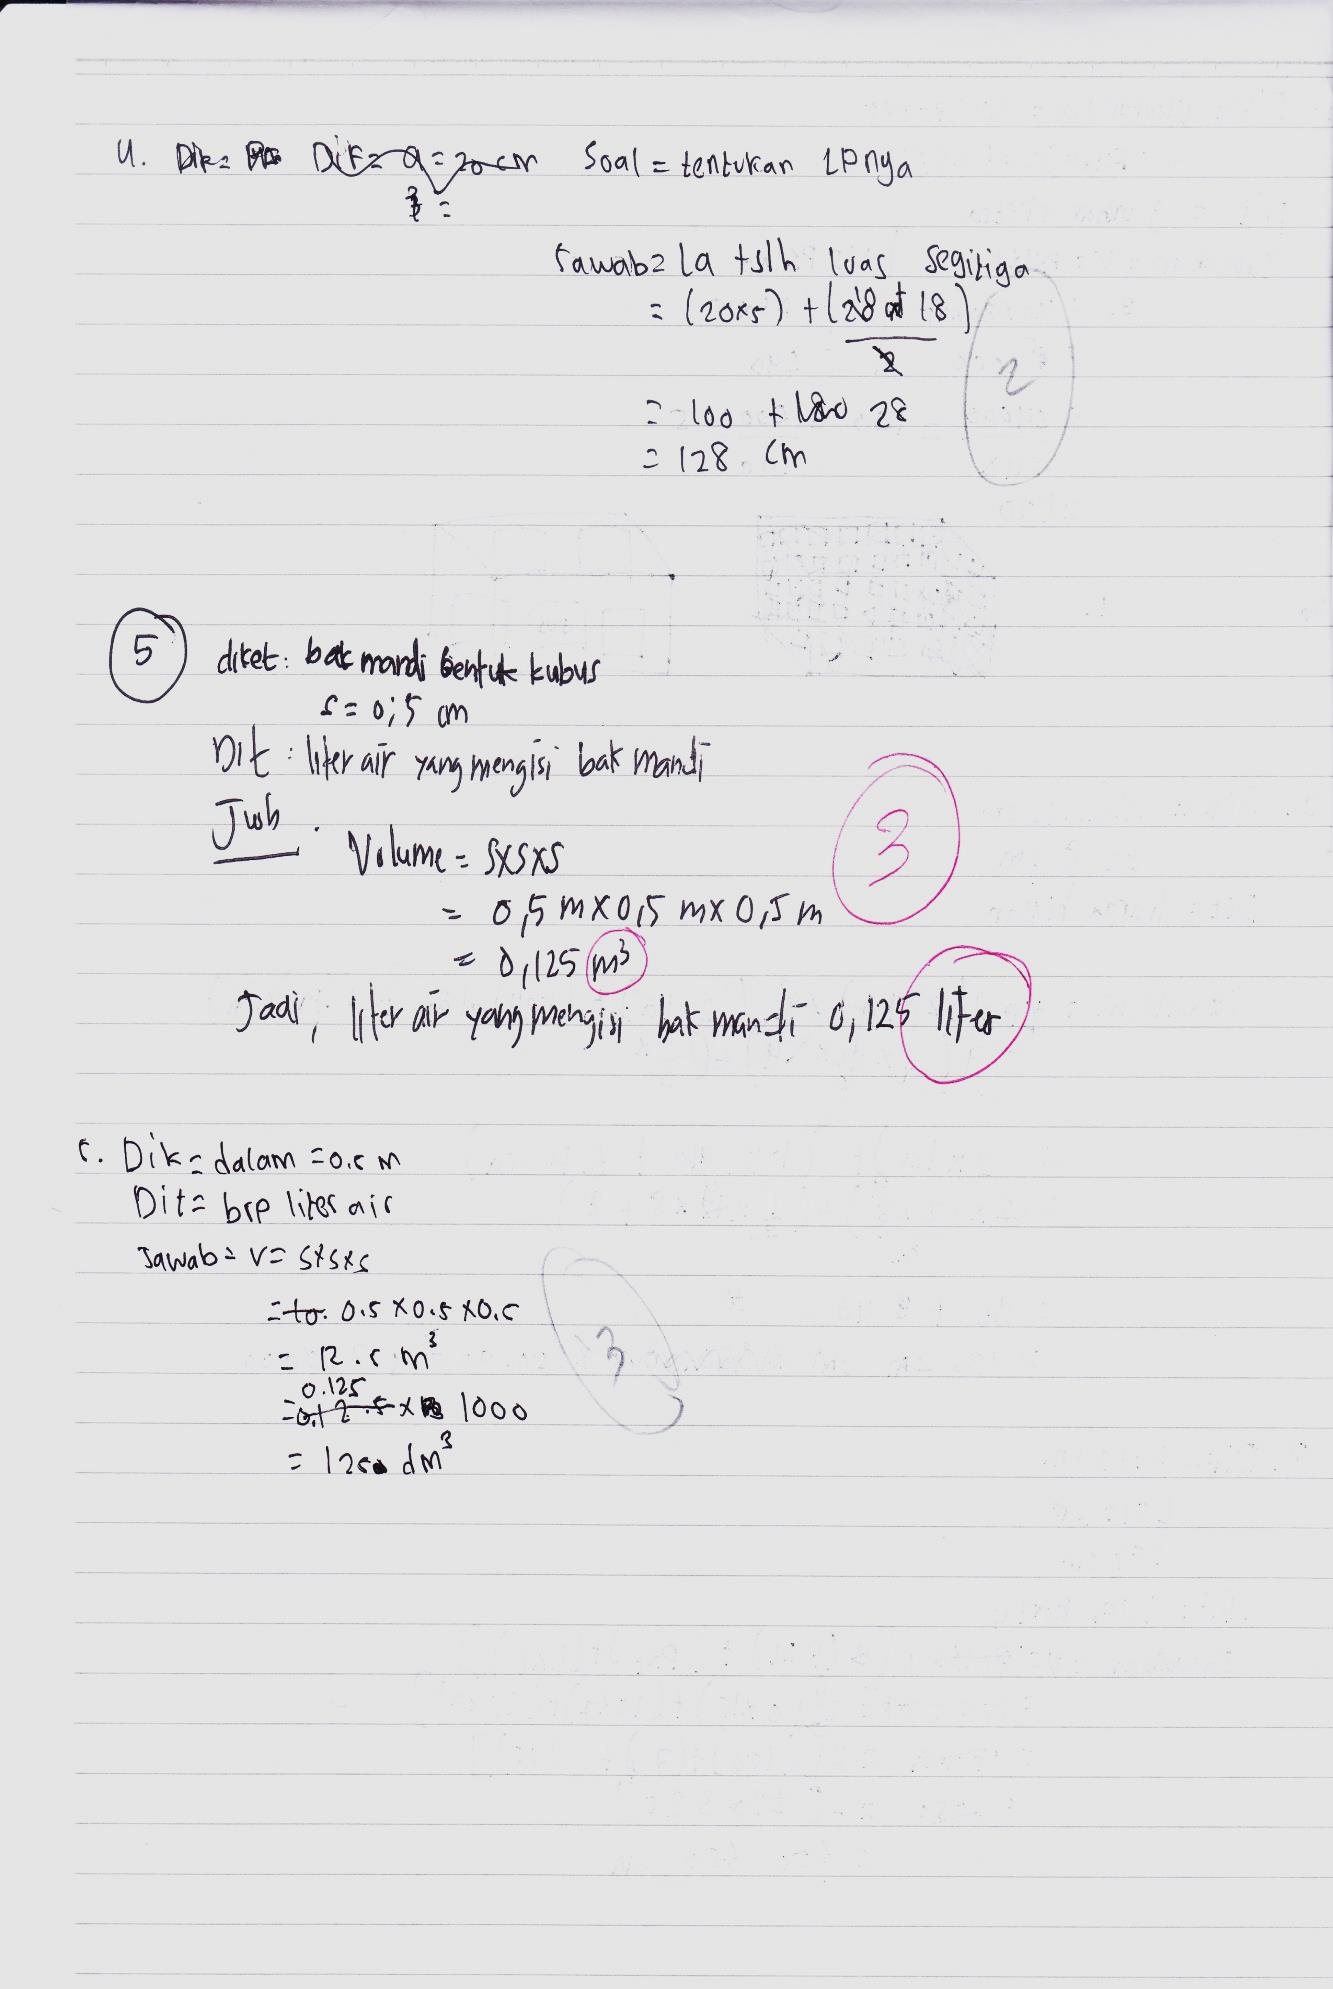 4. Dik= Dik= a = 20 cm Soal = tentukan LPnya
Jawab= La + slh luas segitiga
= (20x5) + (28 at 18)
2
= 100 + 180 28
= 128 cm
2
5 diket: bak mandi bentuk kubus
s = 0,5 cm
Dit : liter air yang mengisi bak mandi
Jwb :
Volume = sxsxs
= 0,5 m x 0,5 m x 0,5 m
= 0,125 m³
3
Jadi, liter air yang mengisi bak mandi 0,125 liter
5. Dik = dalam = 0.5 m
Dit = brp liter air
Jawab = V = sxsxs
= to. 0.5 x 0.5 x 0.5
= 12.5 m³
0.125
= 0.12.5 x 1000
= 1250 dm³
3